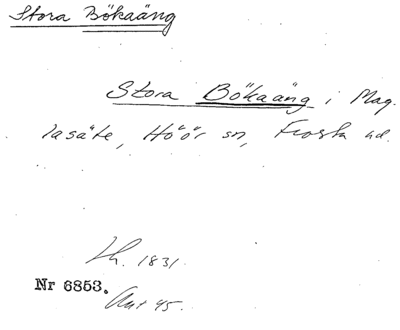 Stora Bökaäng
Stora Bökaäng i Mag.
lasäte, Höör sn, Frosta hd.
Lh. 1831.
Nr 6853.
Ant 45.